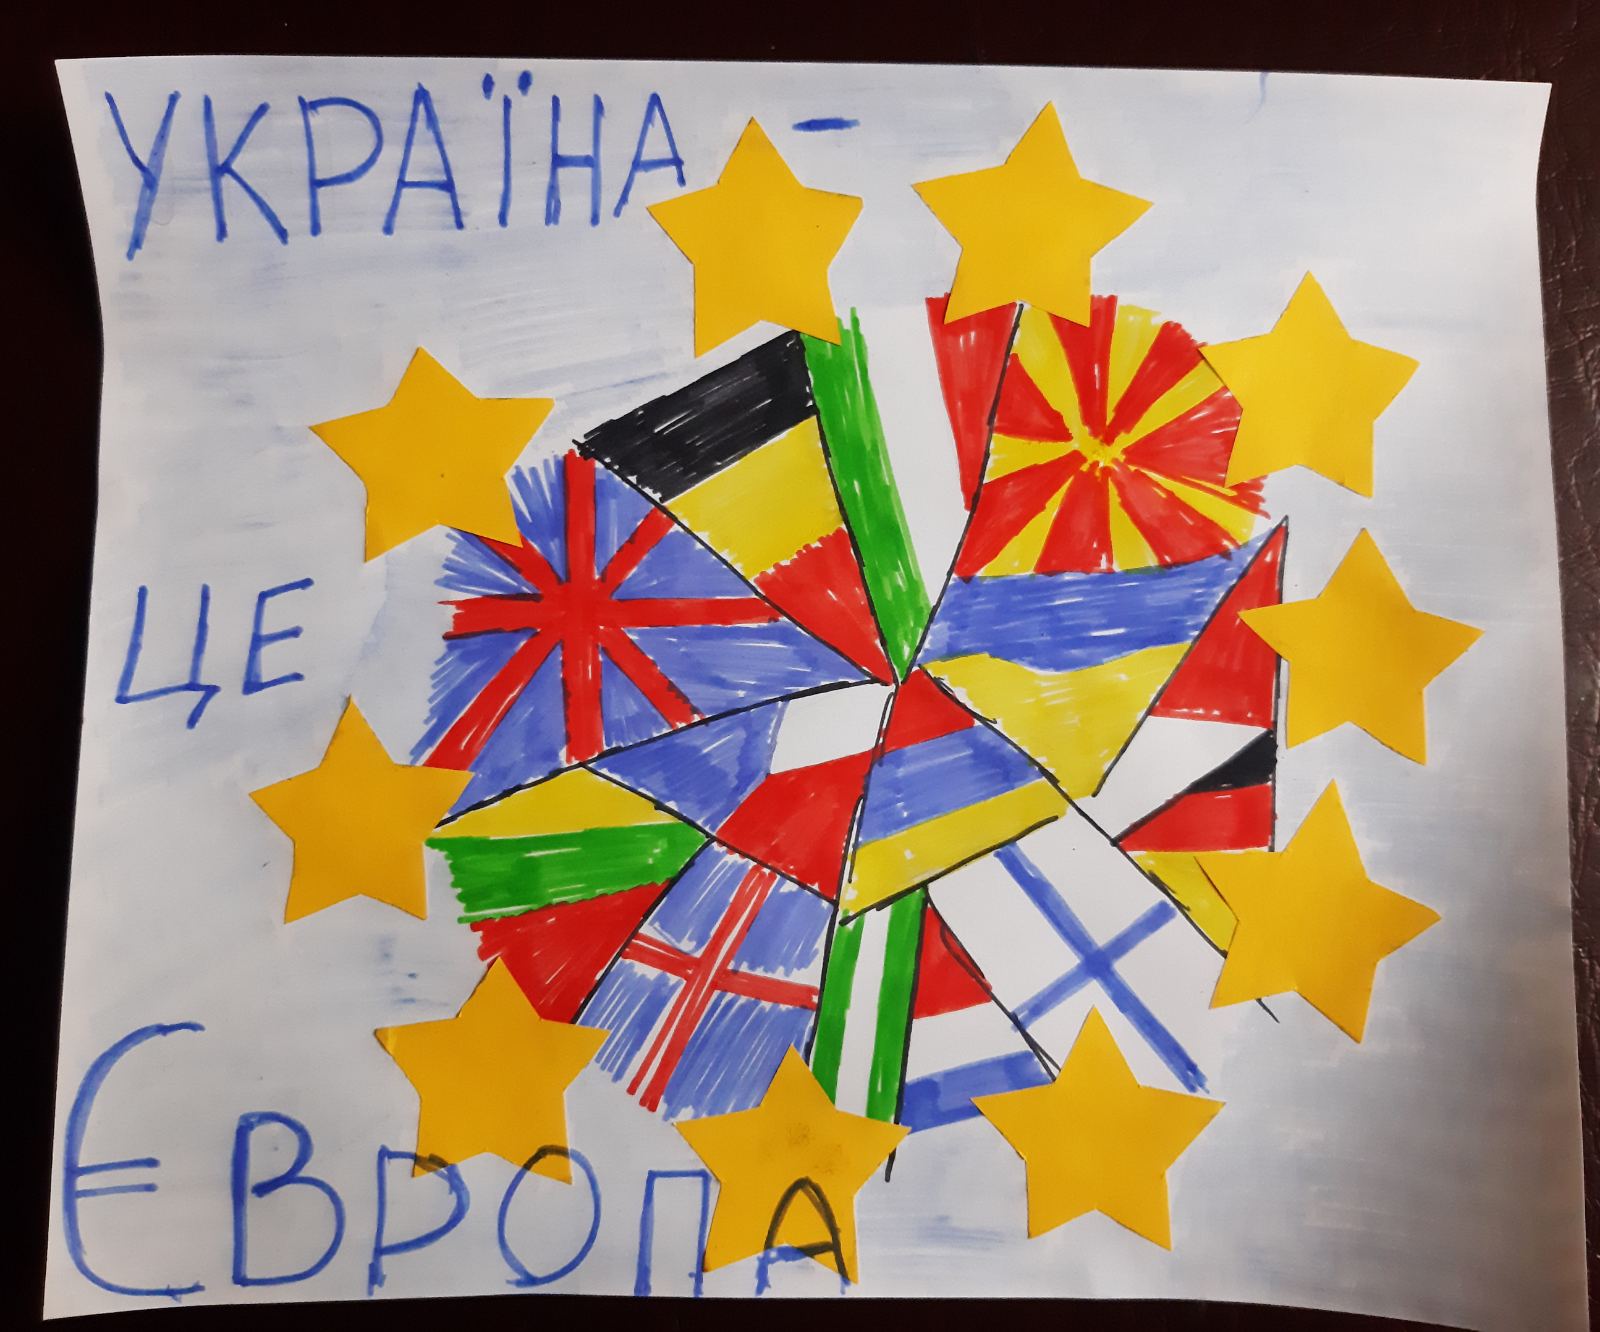 УКРАЇНА –
ЦЕ
ЄВРОПА